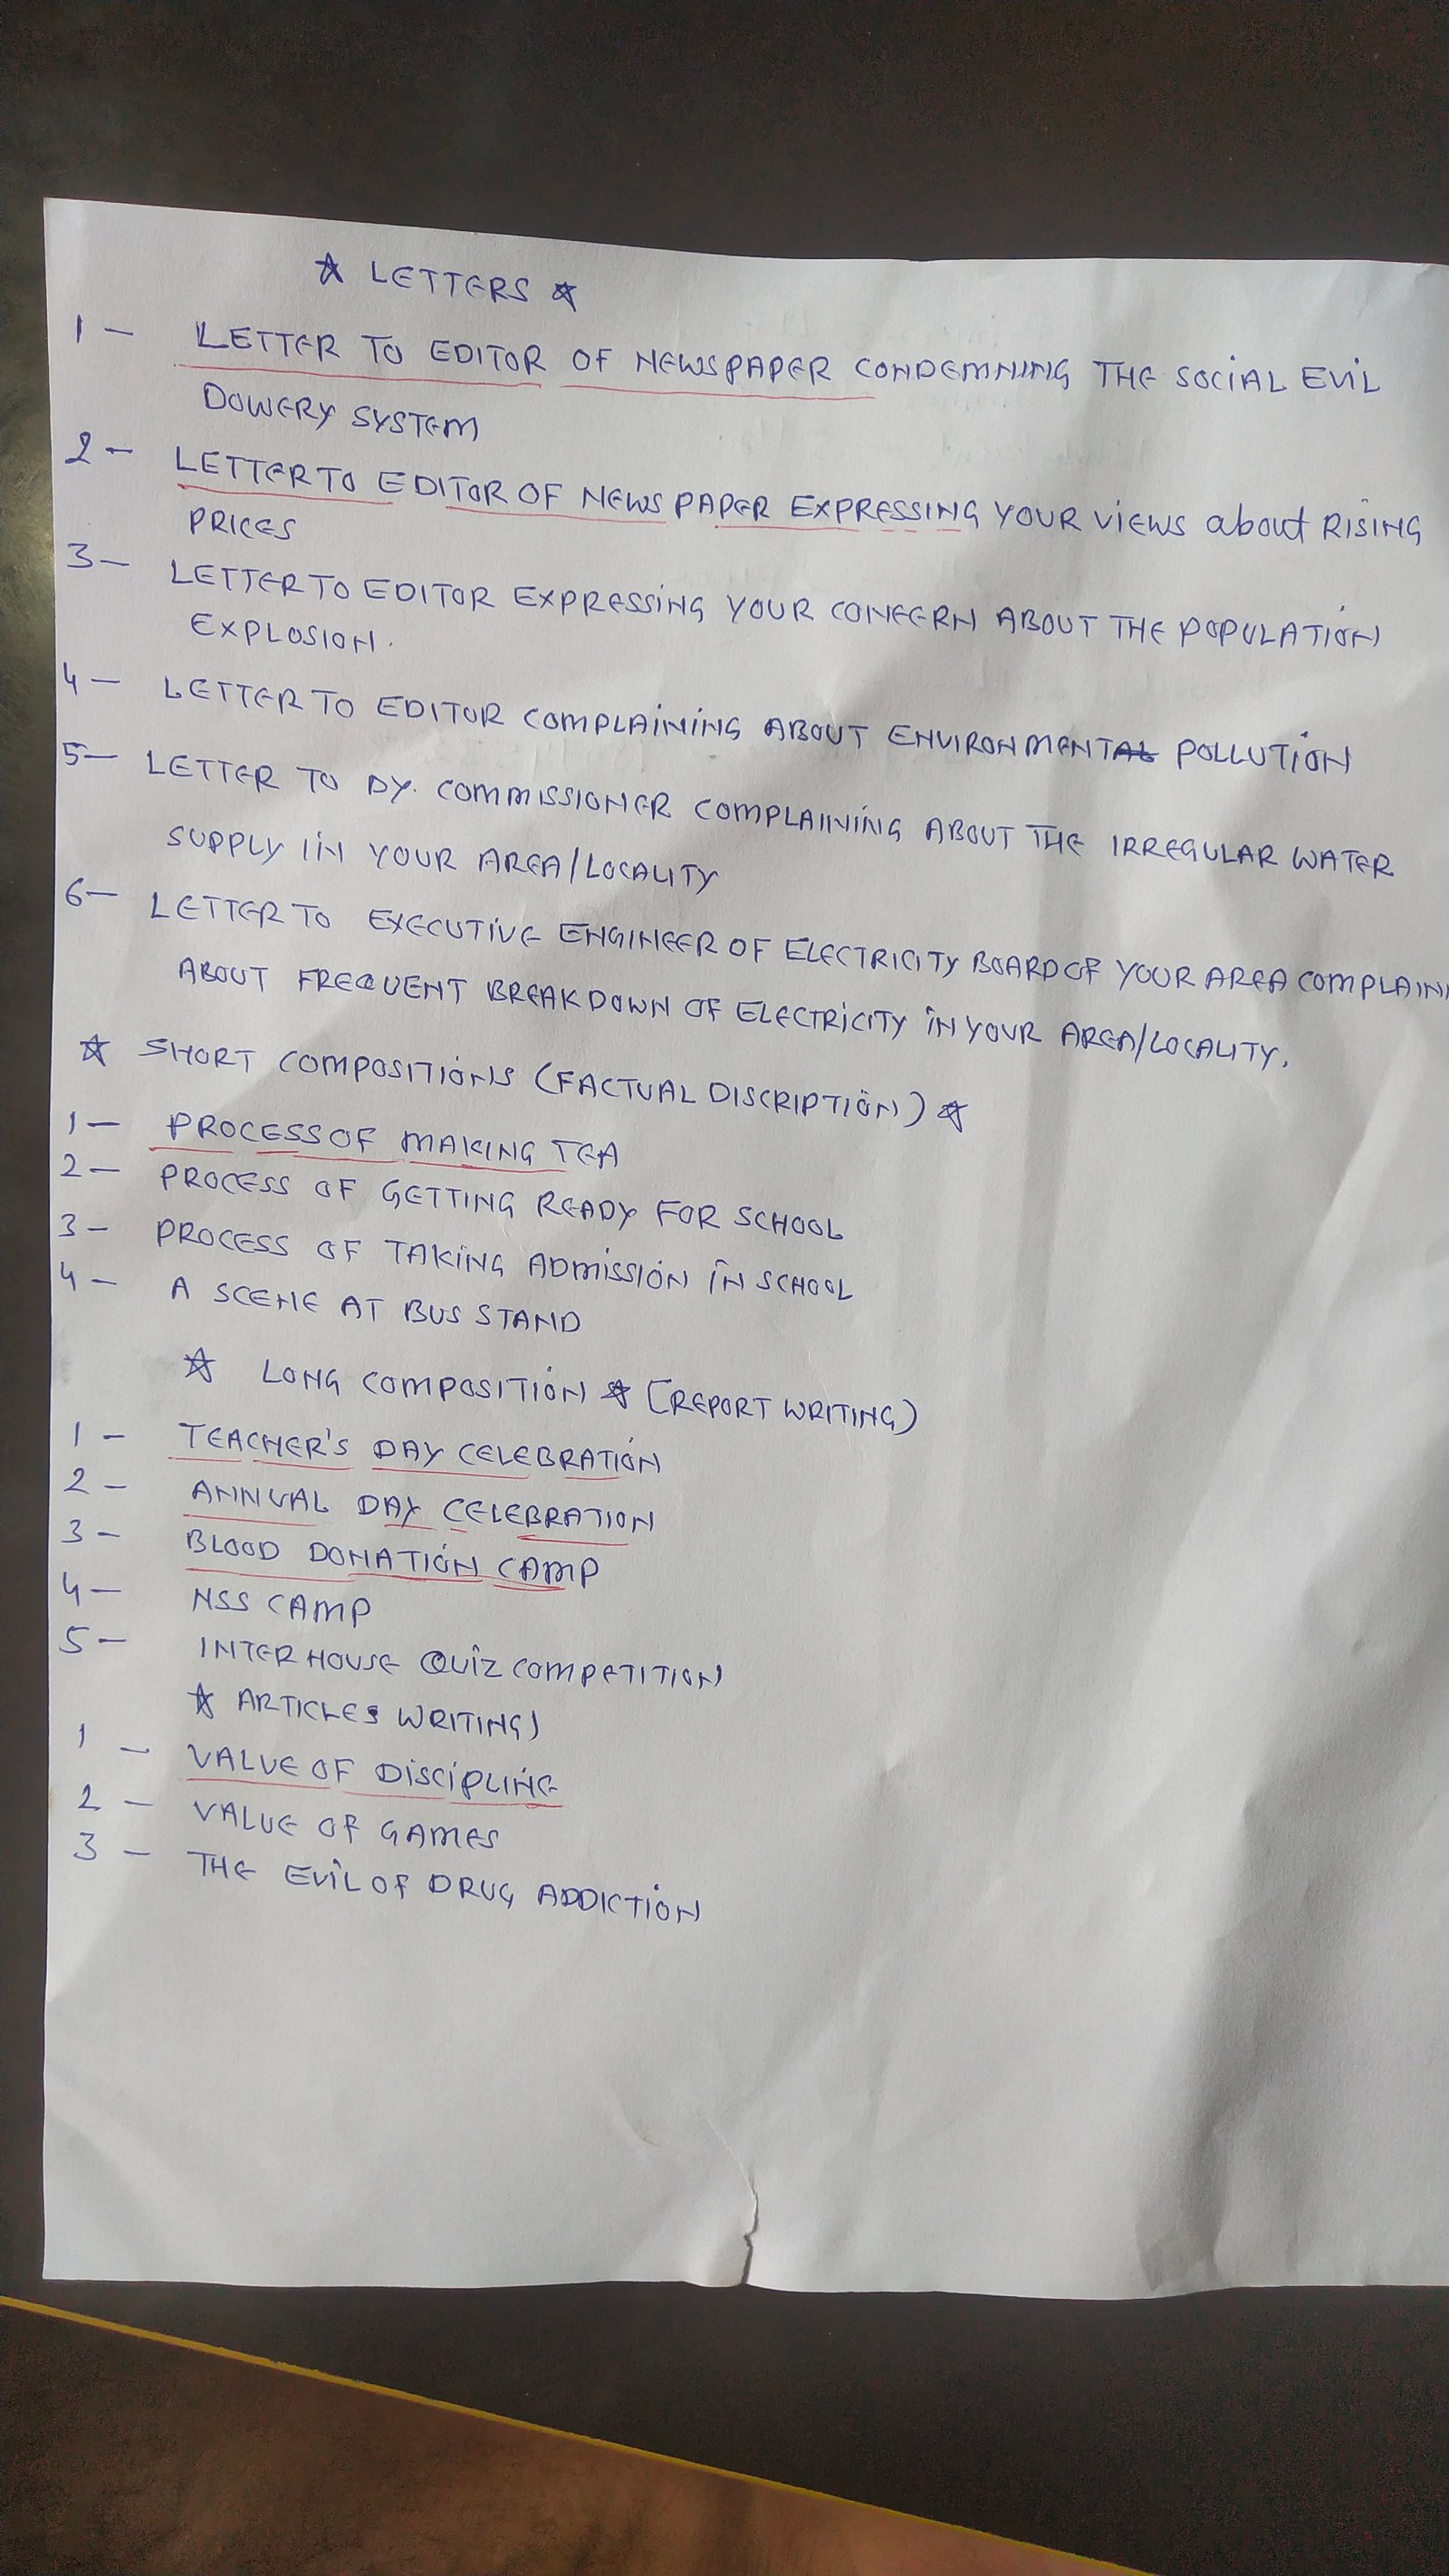 ☆ LETTERS ☆
1 - LETTER TO EDITOR OF NEWSPAPER CONDEMNING THE SOCIAL EVIL
DOWERY SYSTEM
2 - LETTER TO EDITOR OF NEWS PAPER EXPRESSING YOUR VIEWS about RISING
PRICES
3 - LETTER TO EDITOR EXPRESSING YOUR CONCERN ABOUT THE POPULATION
EXPLOSION.
4 - LETTER TO EDITOR COMPLAINING ABOUT ENVIRONMENT POLLUTION
5 - LETTER TO DY. COMMISSIONER COMPLAINING ABOUT THE IRREGULAR WATER
SUPPLY IN YOUR AREA/LOCALITY
6 - LETTER TO EXECUTIVE ENGINEER OF ELECTRICITY BOARD OF YOUR AREA COMPLAINI
ABOUT FREQUENT BREAKDOWN OF ELECTRICITY IN YOUR AREA/LOCALITY.
☆ SHORT COMPOSITIONS (FACTUAL DISCRIPTION) ☆
1 - PROCESS OF MAKING TEA
2 - PROCESS OF GETTING READY FOR SCHOOL
3 - PROCESS OF TAKING ADMISSION IN SCHOOL
4 - A SCENE AT BUS STAND
☆ LONG COMPOSITION ☆ [REPORT WRITING)
1 - TEACHER'S DAY CELEBRATION
2 - ANNUAL DAY CELEBRATION
3 - BLOOD DONATION CAMP
4 - NSS CAMP
5 - INTER HOUSE QUIZ COMPETITION
☆ ARTICLES WRITING)
1 - VALUE OF DISCIPLINE
2 - VALUE OF GAMES
3 - THE EVIL OF DRUG ADDICTION